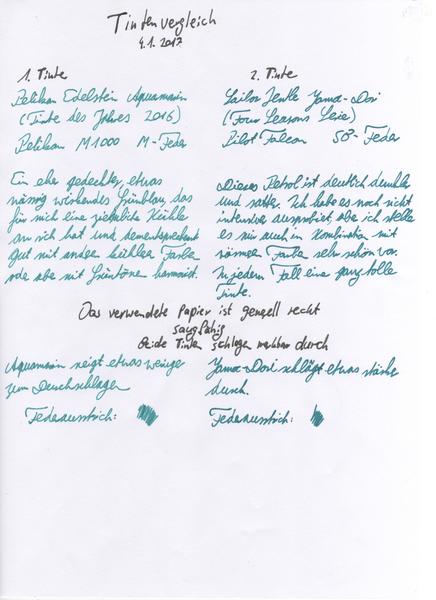 Tintenvergleich
4.1.2017
1. Tinte
Pelikan Edelstein Aquamarin
(Tinte des Jahres 2016)
Pelikan M1000 M-Feder
Ein eher gedeckter, etwas
wirkendes Grünblau, das
für mich eine ziemliche Kühle
an sich hat und dementsprechend
gut mit anderen kühlen Farben
oder aber mit Grüntönen harmoniert.
2. Tinte
Sailor Jentle Yama-Dori
(Four Seasons Serie)
Pilot Falcon SB-Feder
Dieses Petrol ist deutlich dunkler
und satter. Ich habe es noch nicht
intensiver ausprobiert, aber ich stelle
es mir auch in Kombination mit
wärmeren Farben sehr schön vor.
In jedem Fall eine ganz tolle
Tinte.
Das verwendete Papier ist generell recht
saugfähig
Beide Tinten schlagen durch
Aquamarin neigt etwas weniger
zum Durchschlagen
Federausstrich:
Yama-Dori schlägt etwas stärker
durch.
Federausstrich: